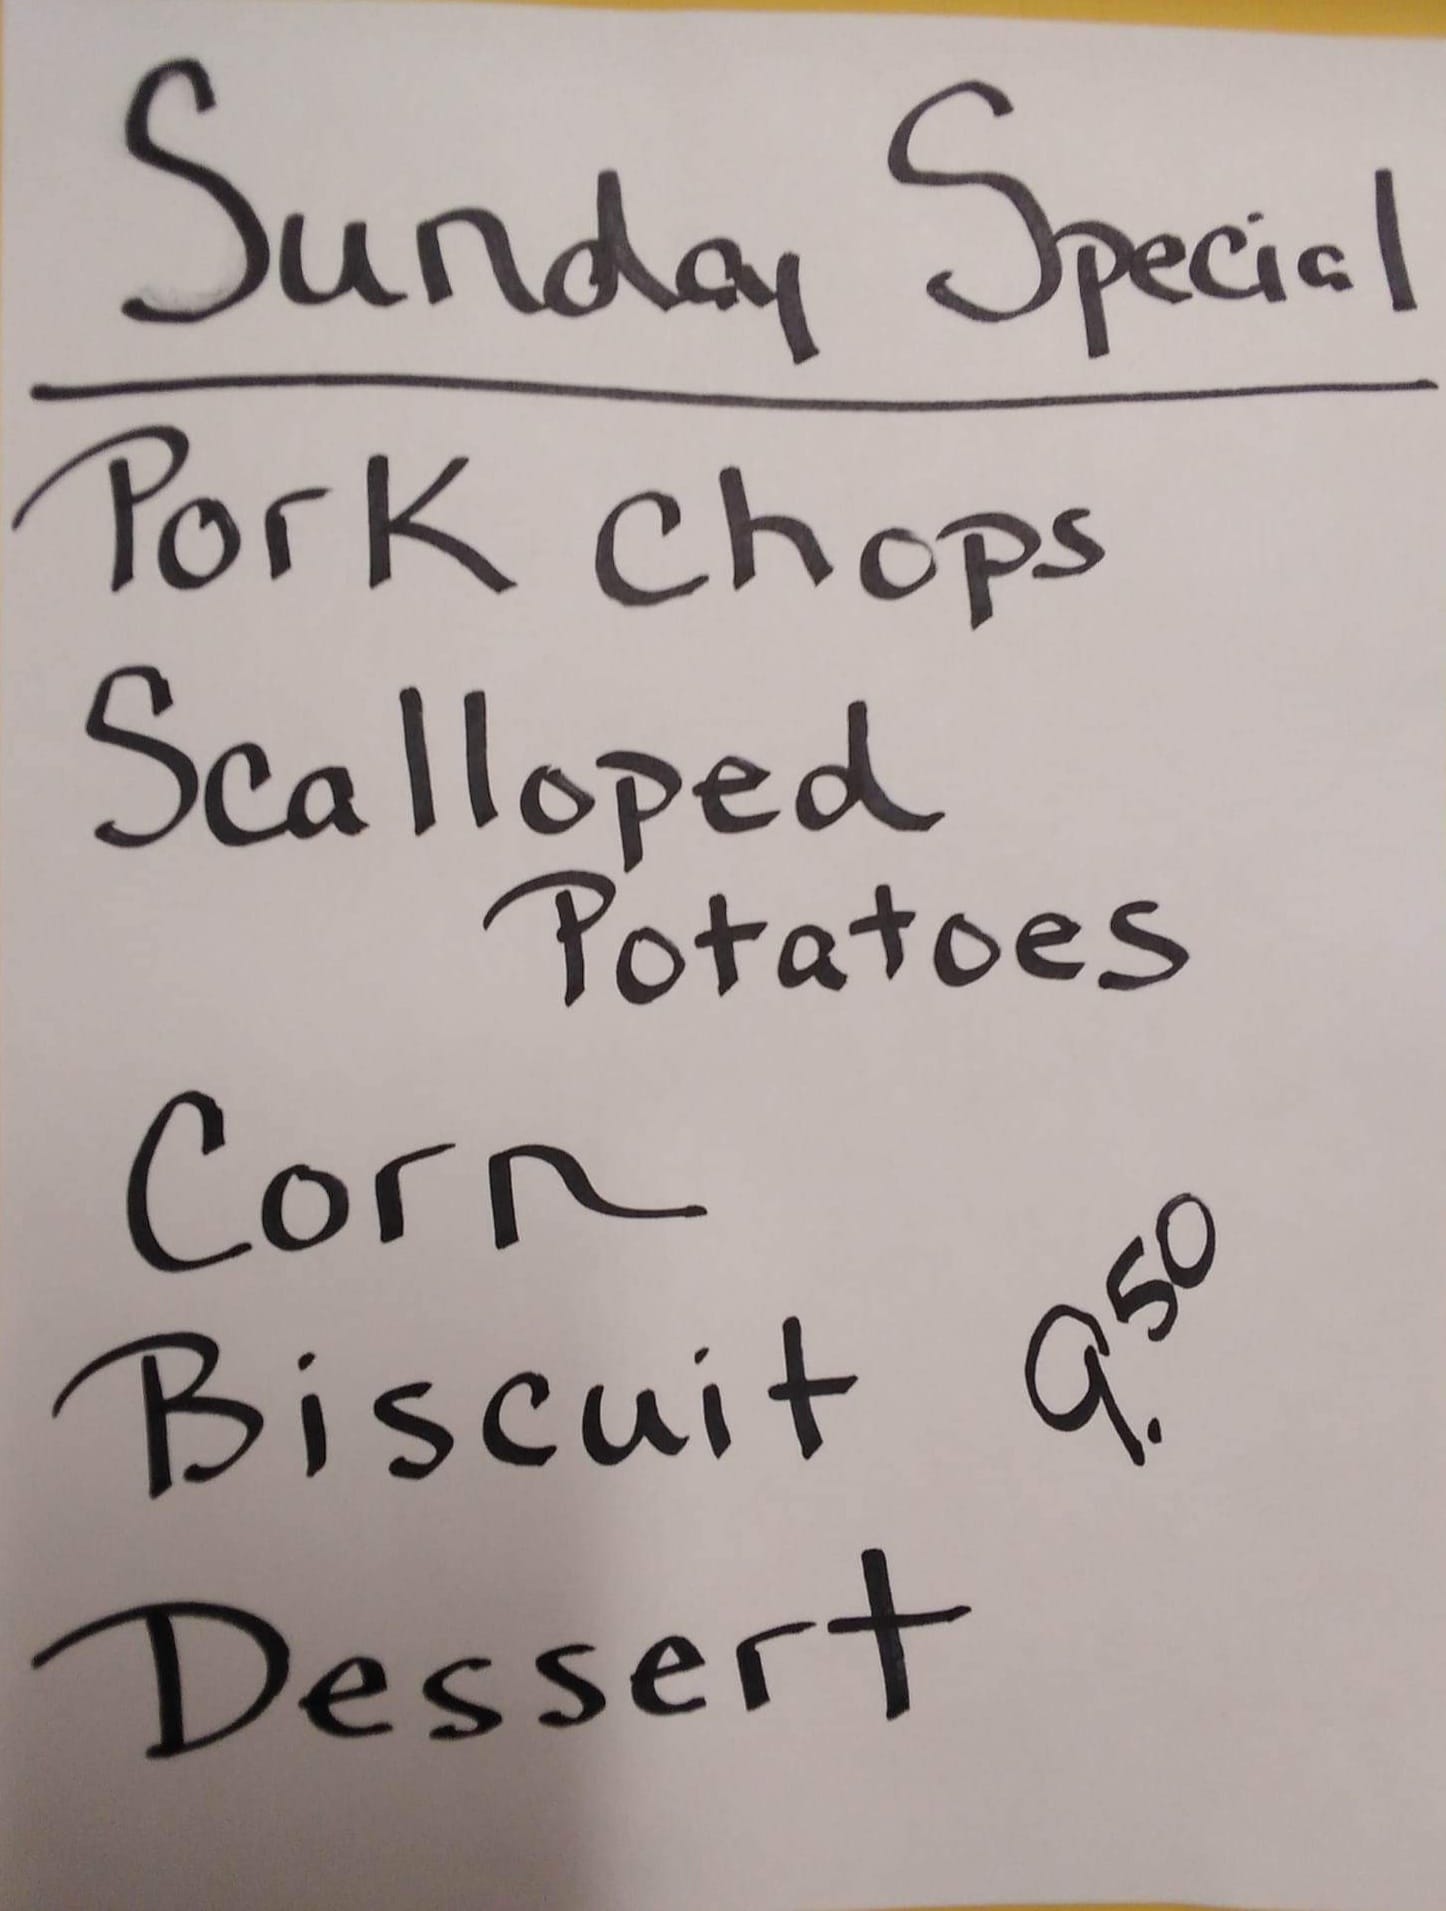 Sunday Special
Pork Chops
Scalloped
Potatoes
Corn
Biscuit 9.50
Dessert